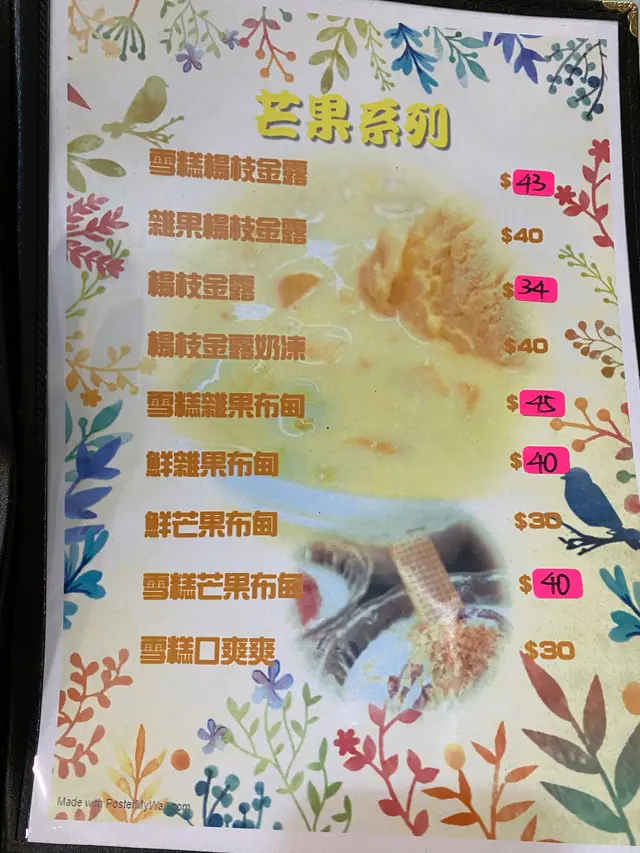 芒果系列
雪糕楊枝金露 $43
雜果楊枝金露 $40
楊枝金露 $34
楊枝金露奶凍 $40
雪糕雜果布甸 $45
鮮雜果布甸 $40
鮮芒果布甸 $30
雪糕芒果布甸 $40
雪糕口爽爽 $30
Made with PosterMyWall.com